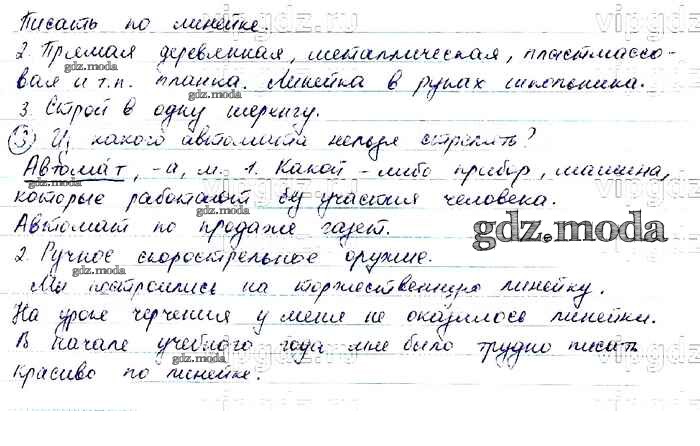 Писать по линейке.
2. Прямая деревянная, металлическая, пластмассо-
вая и т.п. планка. Линейка в руках школьника.
3. Строй в одну шеренгу.
3) Из какого автомата нельзя стрелять?
Автома́т, -а, м. 1. Какой-либо прибор, машина,
которые работают без участия человека.
Автомат по продаже газет.
2. Ручное скорострельное оружие.
Мы построились на торжественную линейку.
На уроке черчения у меня не оказалось линейки.
В начале учебного года мне было трудно писать
красиво по линейке.
gdz.moda
gdz.moda
gdz.moda
gdz.moda
gdz.moda
gdz.moda
gdz.moda
gdz.moda
gdz.moda
vipgdz.ru
vipgdz.ru
vipgdz.ru